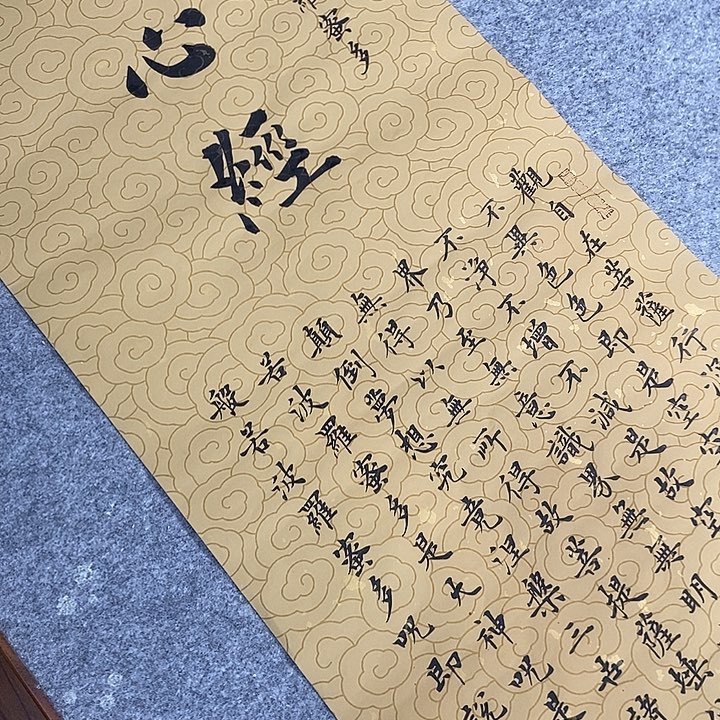 羅蜜多
心經
觀自在菩薩行深
不異色色即是空空
不淨不增不減是故空
界乃至無意識界無無明
無得以無所得故菩提薩埵
顛倒夢想究竟涅槃三世諸
若波羅蜜多是大神咒是
般若波羅蜜多咒即說